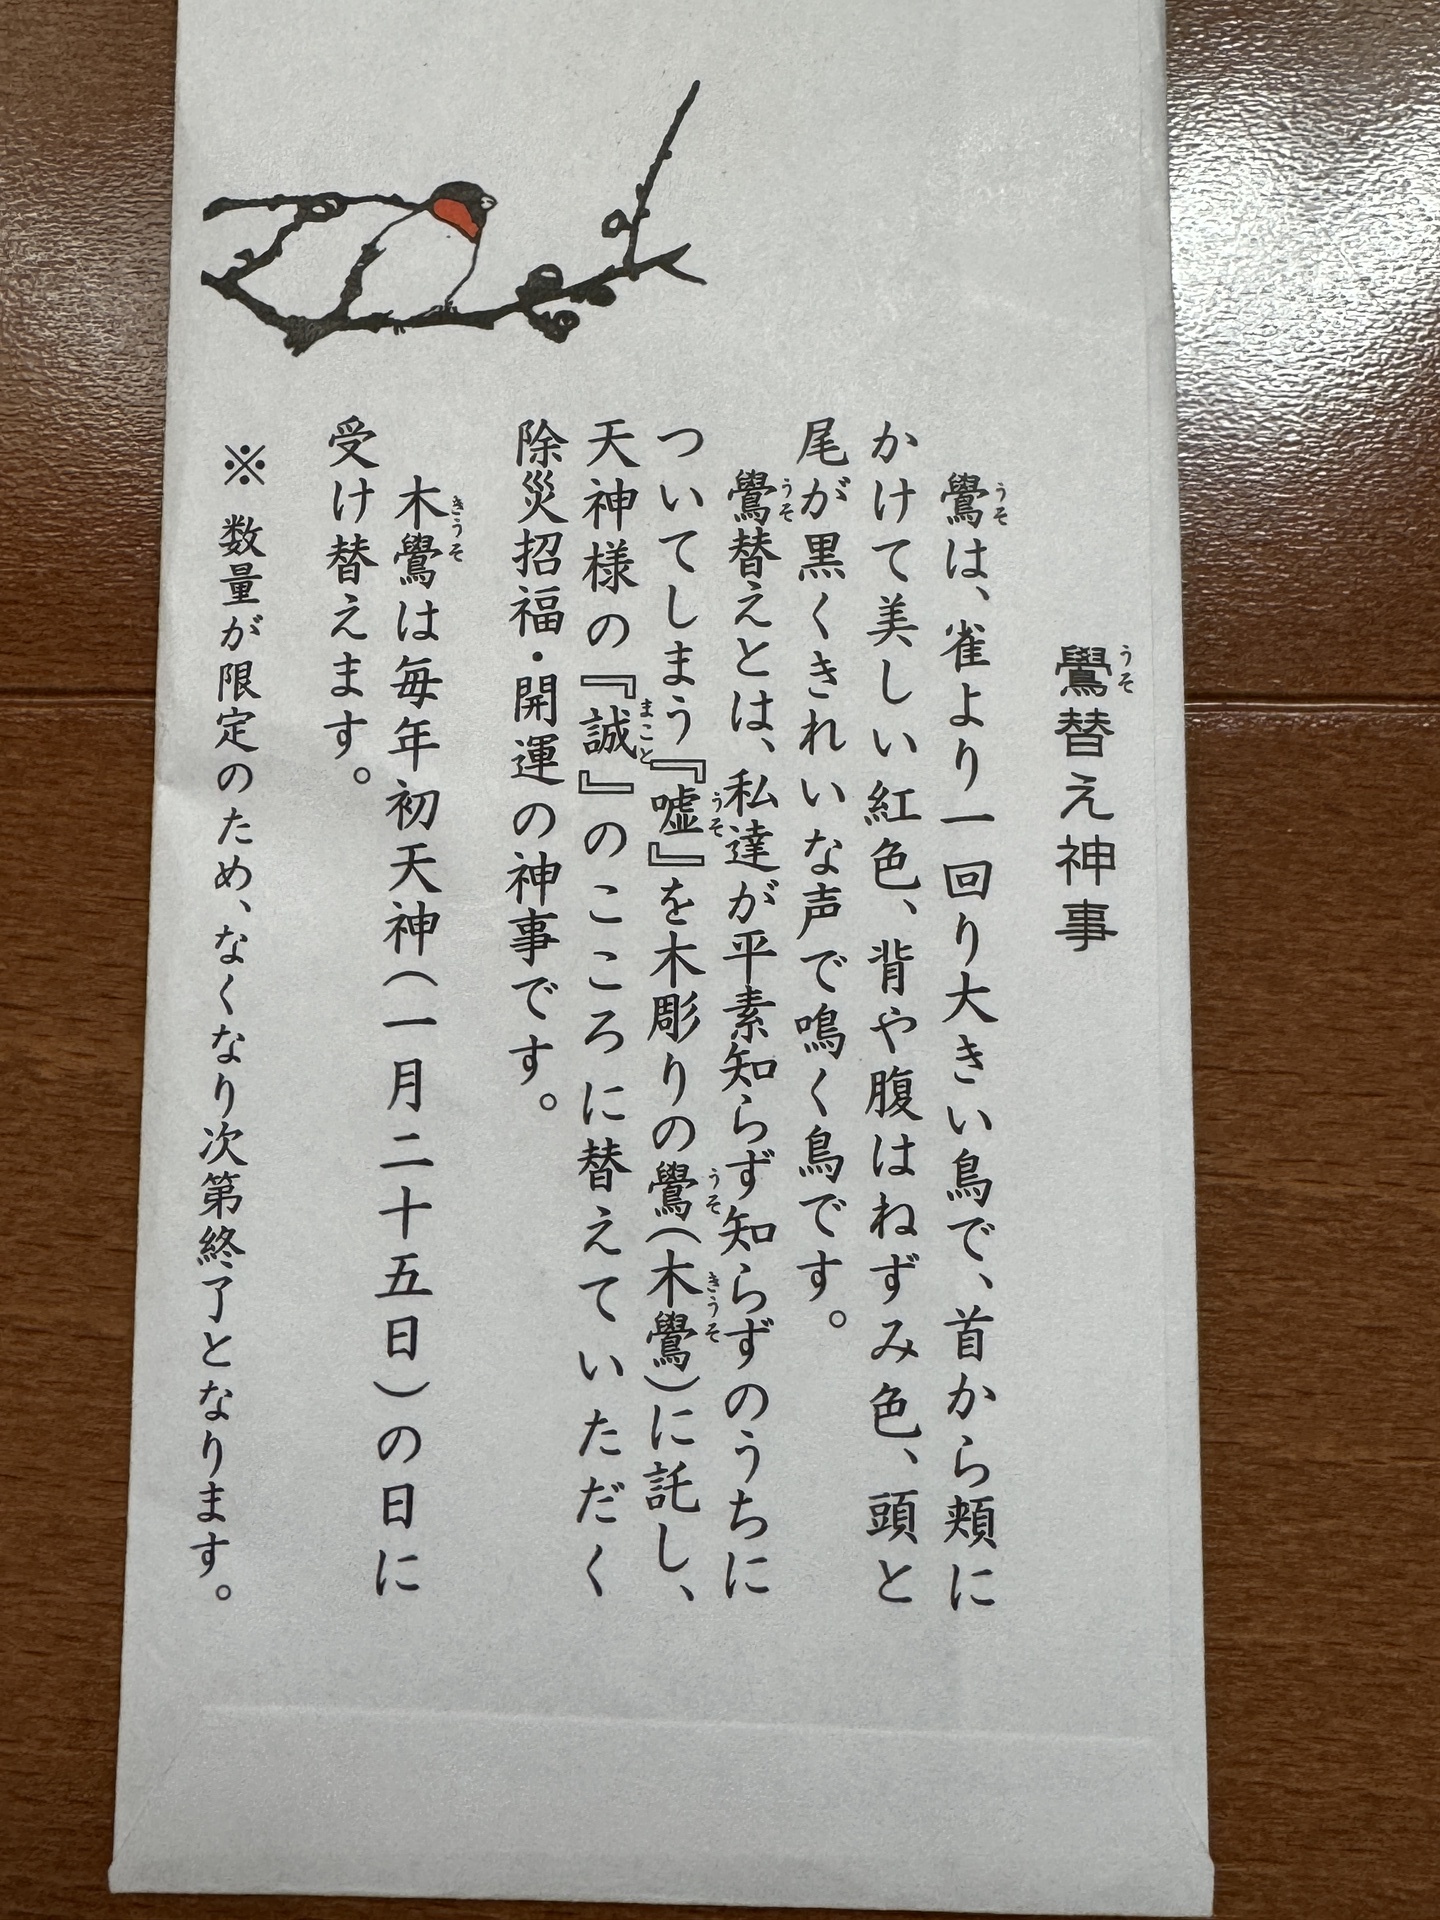 鷽替え神事
鷽は、雀より一回り大きい鳥で、首から頬に
かけて美しい紅色、背や腹はねずみ色、頭と
尾が黒くきれいな声で鳴く鳥です。
鷽替えとは、私達が平素知らず知らずのうちに
ついてしまう『嘘』を木彫りの鷽（木鷽）に託し、
天神様の『誠』のこころに替えていただく
除災招福・開運の神事です。
木鷽は毎年初天神（一月二十五日）の日に
受け替えます。
※ 数量が限定のため、なくなり次第終了となります。